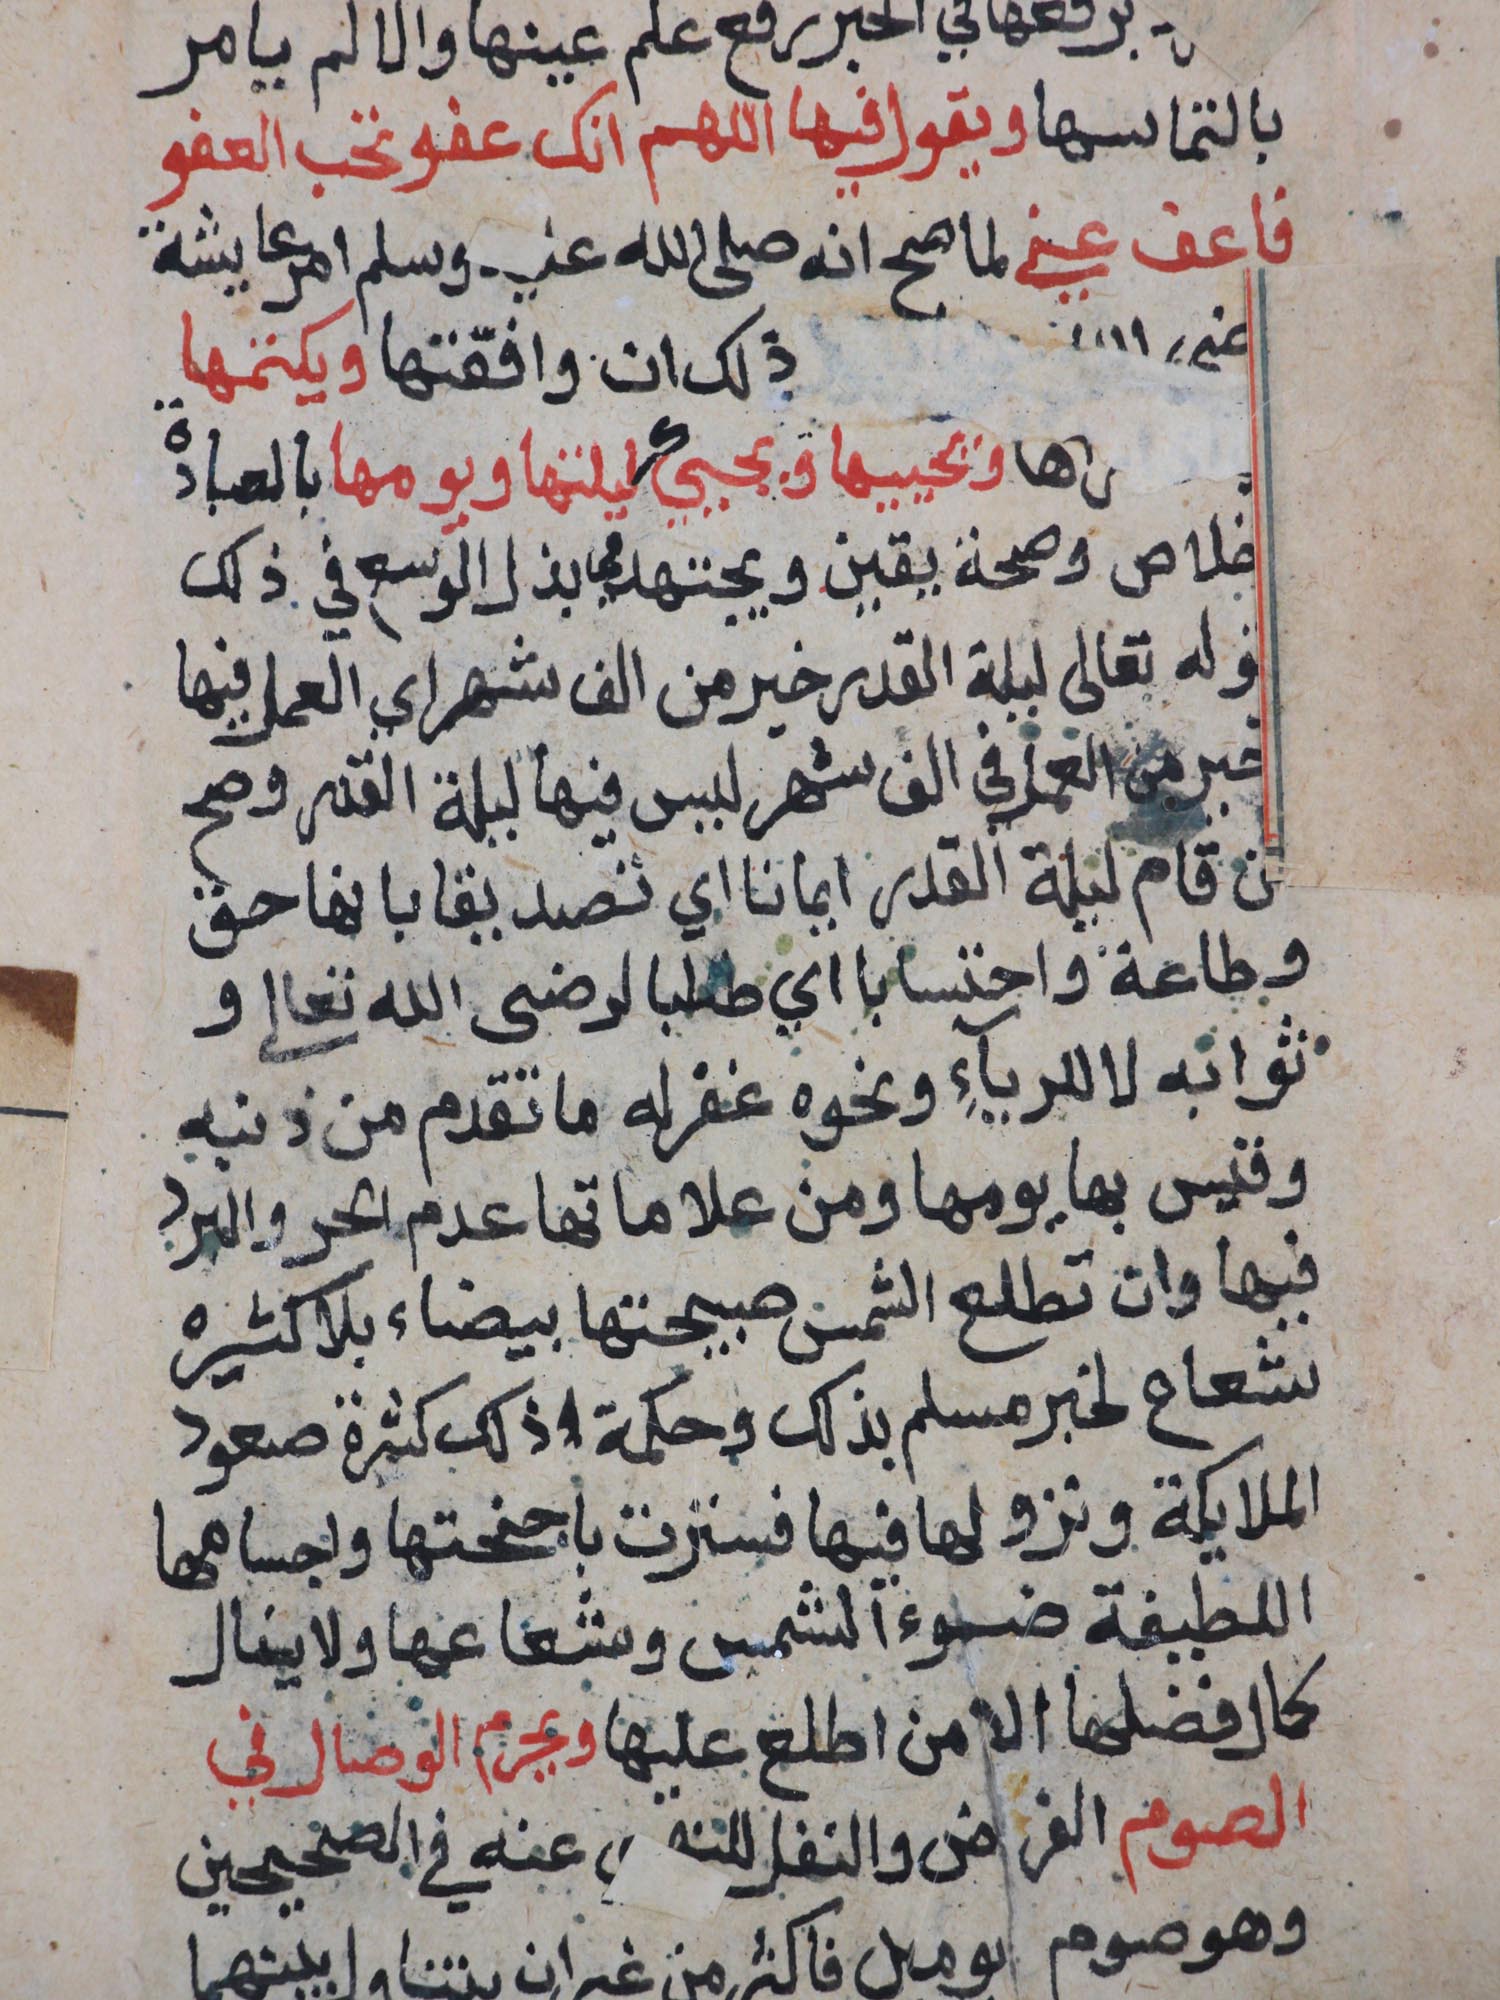 برفعها في الخبر رفع علم عينها والالم يامر
بالتماسها ويقول فيها اللهم انك عفو تحب العفو
فاعف عني لما صح انه صلى الله عليه وسلم امر عايشة
ذلك ان وافقتها ويكتمها
راها ويحييها ويحيي ليلتها ويومها بالعبادة
خلاص وصحة يقين ويجتهد في بذل الوسع في ذلك
قوله تعالى ليلة القدر خير من الف شهر اي العمل فيها
خير من العمل في الف شهر ليس فيها ليلة القدر وصح
من قام ليلة القدر ايمانا اي تصديقا بانها حق
وطاعة واحتسابا اي طلبا لرضى الله تعالى و
ثوابه لا للرياء ونحوه غفر له ما تقدم من ذنبه
وقيس بها يومها ومن علاماتها عدم الحر والبرد
فيها وان تطلع الشمس صبيحتها بيضاء بلا كثيره
شعاع لخبر مسلم بذلك وحكمة ذلك كثرة صعود
الملايكة ونزولها فيها فسترت باجنحتها واجسامها
اللطيفة ضوء الشمس وشعاعها ولا ينال
كمال فضلها الا من اطلع عليها ويحرم الوصال في
الصوم الفرض والنفل للنهي عنه في الصحيحين
وهو صوم يومين فاكثر من غير ان يتناول بينهما